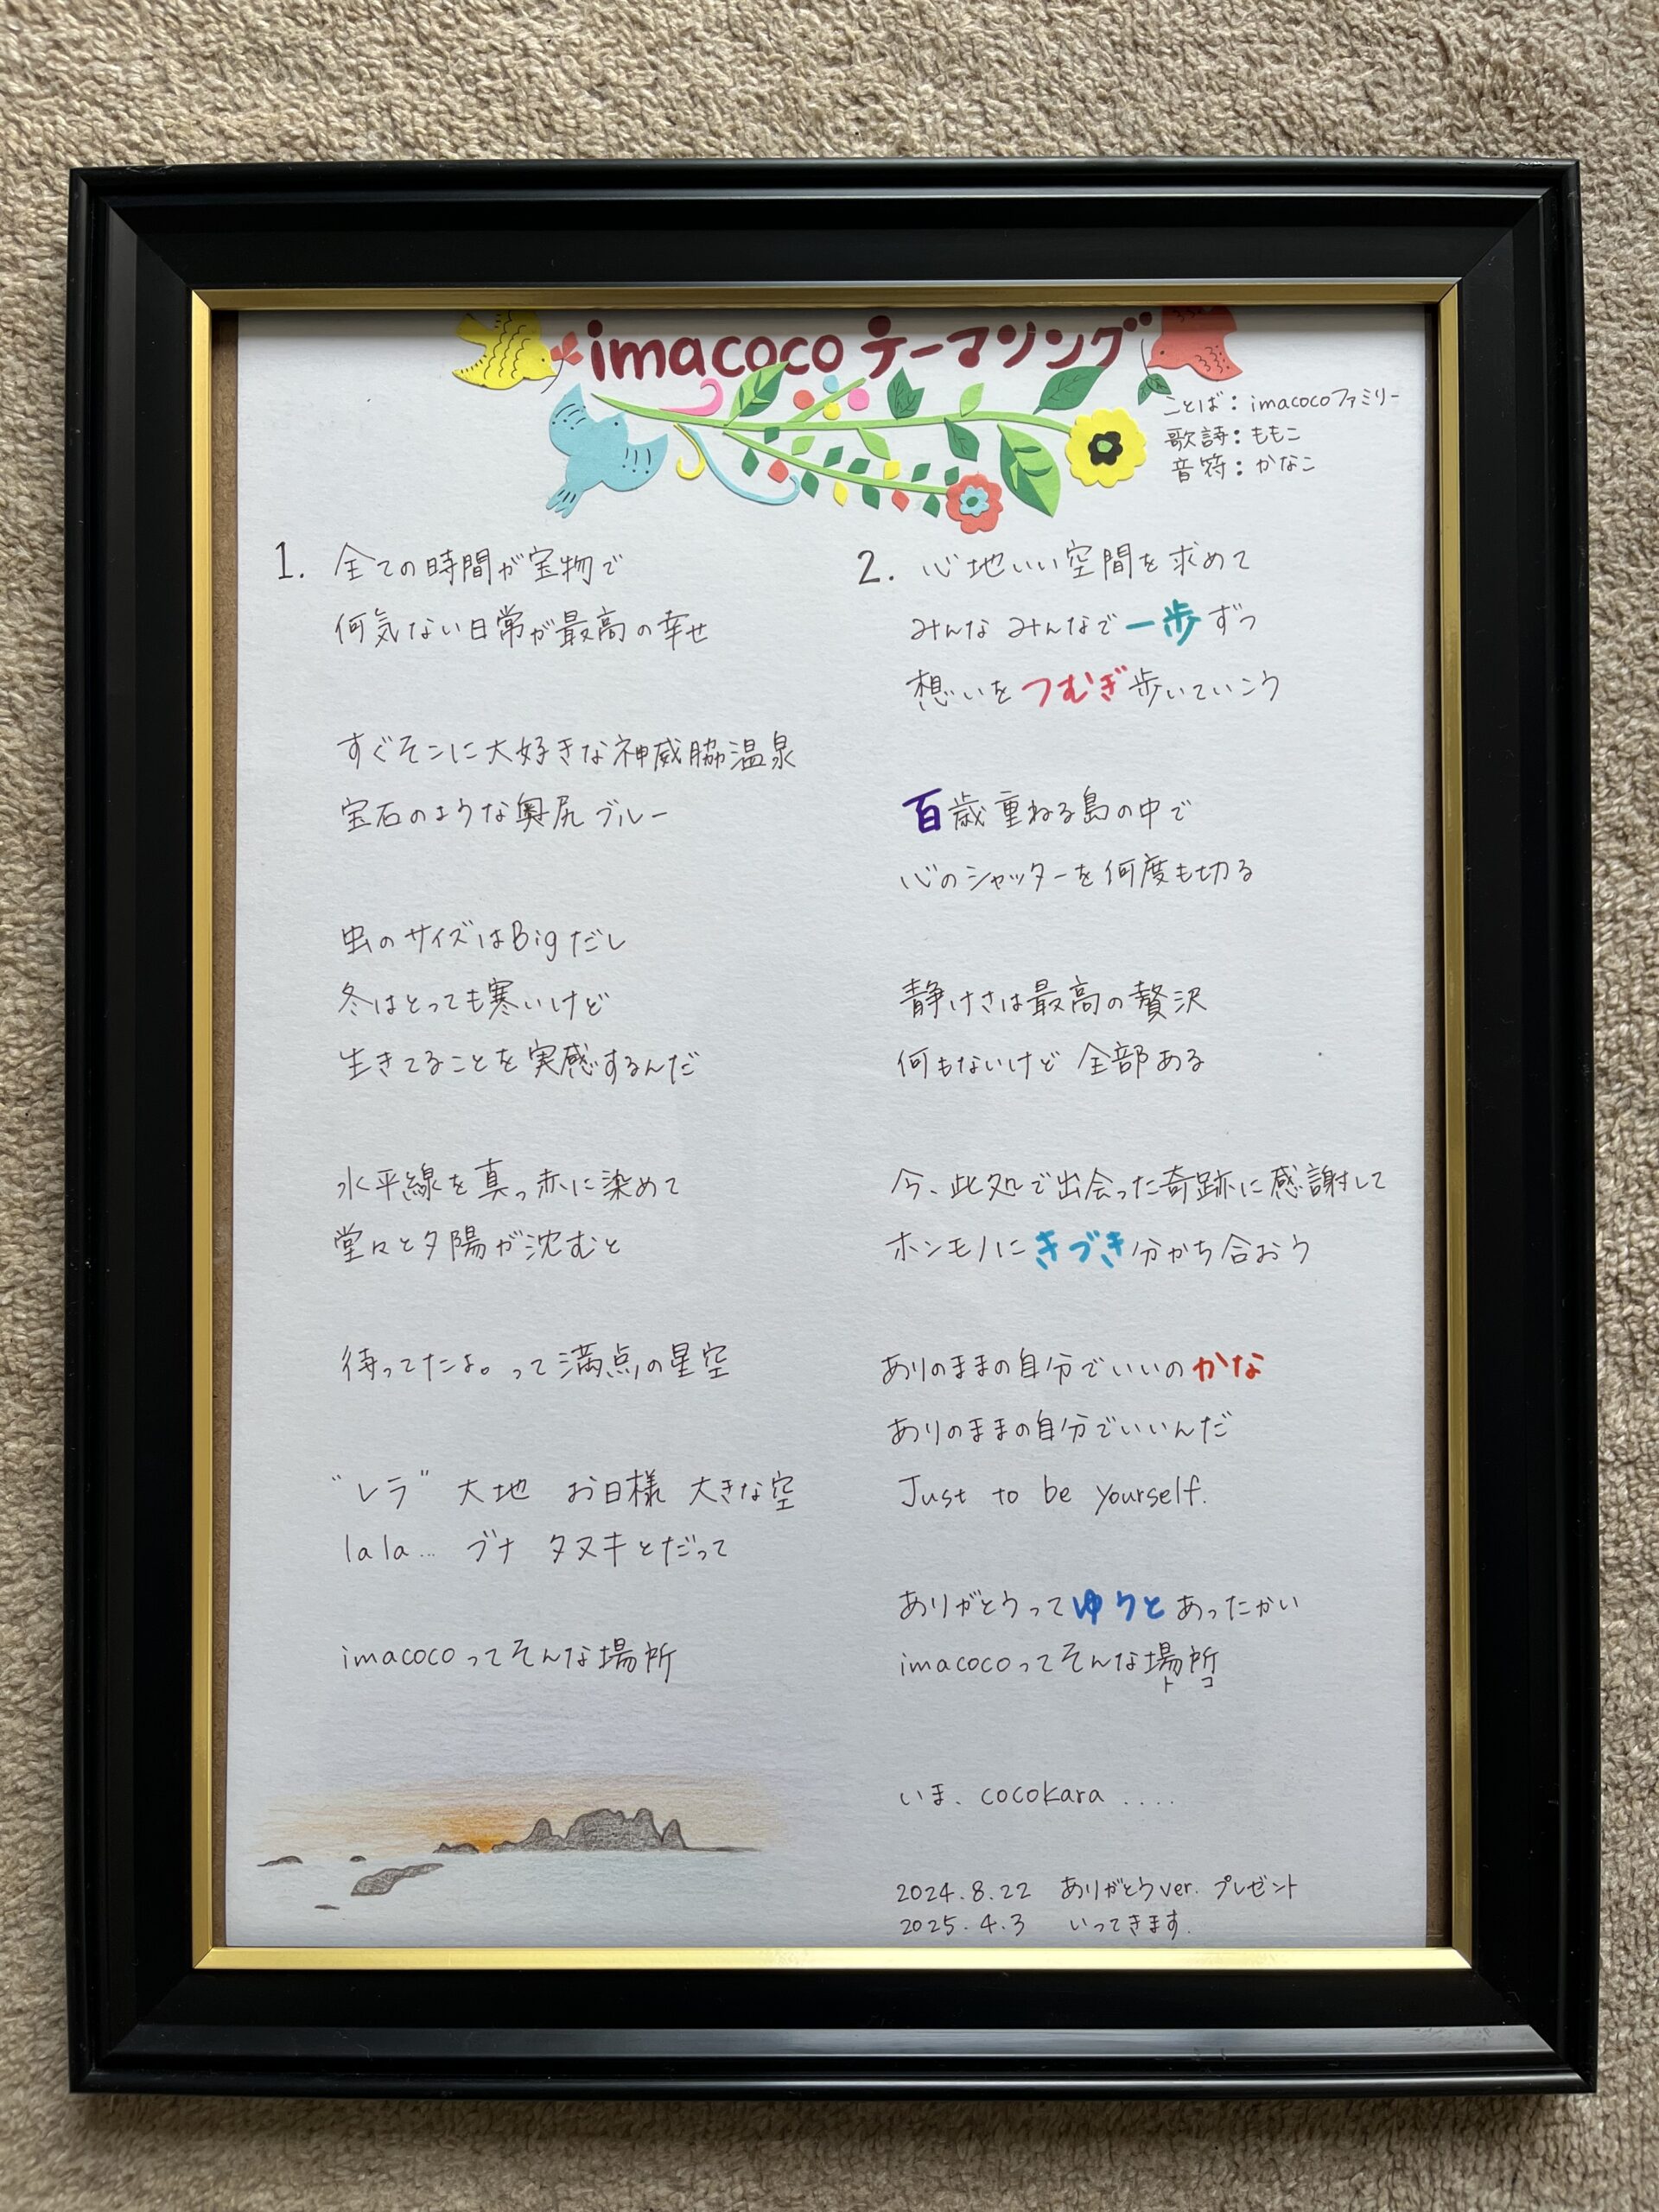 imacoco テーマソング
ことば：imacocoファミリー
歌詩：ももこ
音符：かなこ
1. 全ての時間が宝物で
何気ない日常が最高の幸せ
すぐそこに大好きな神威脇温泉
宝石のような奥尻ブルー
虫のサイズはBigだし
冬はとっても寒いけど
生きてることを実感するんだ
水平線を真っ赤に染めて
堂々と夕陽が沈むと
待ってたよ。って満点の星空
"レラ" 大地 お日様 大きな空
lala... ブナ タヌキとだって
imacocoってそんな場所
2. 心地いい空間を求めて
みんな みんなで一歩ずつ
想いをつむぎ歩いていこう
百歳重ねる島の中で
心のシャッターを何度も切る
静けさは最高の贅沢
何もないけど 全部ある
今、此処で出会った奇跡に感謝して
ホンモノにきづき分かち合おう
ありのままの自分でいいのかな
ありのままの自分でいいんだ
Just to be yourself.
ありがとうってゆうとあったかい
imacocoってそんな場所
トコ
いま、cocokara ....
2024.8.22 ありがとうver. プレゼント
2025.4.3 いってきます.